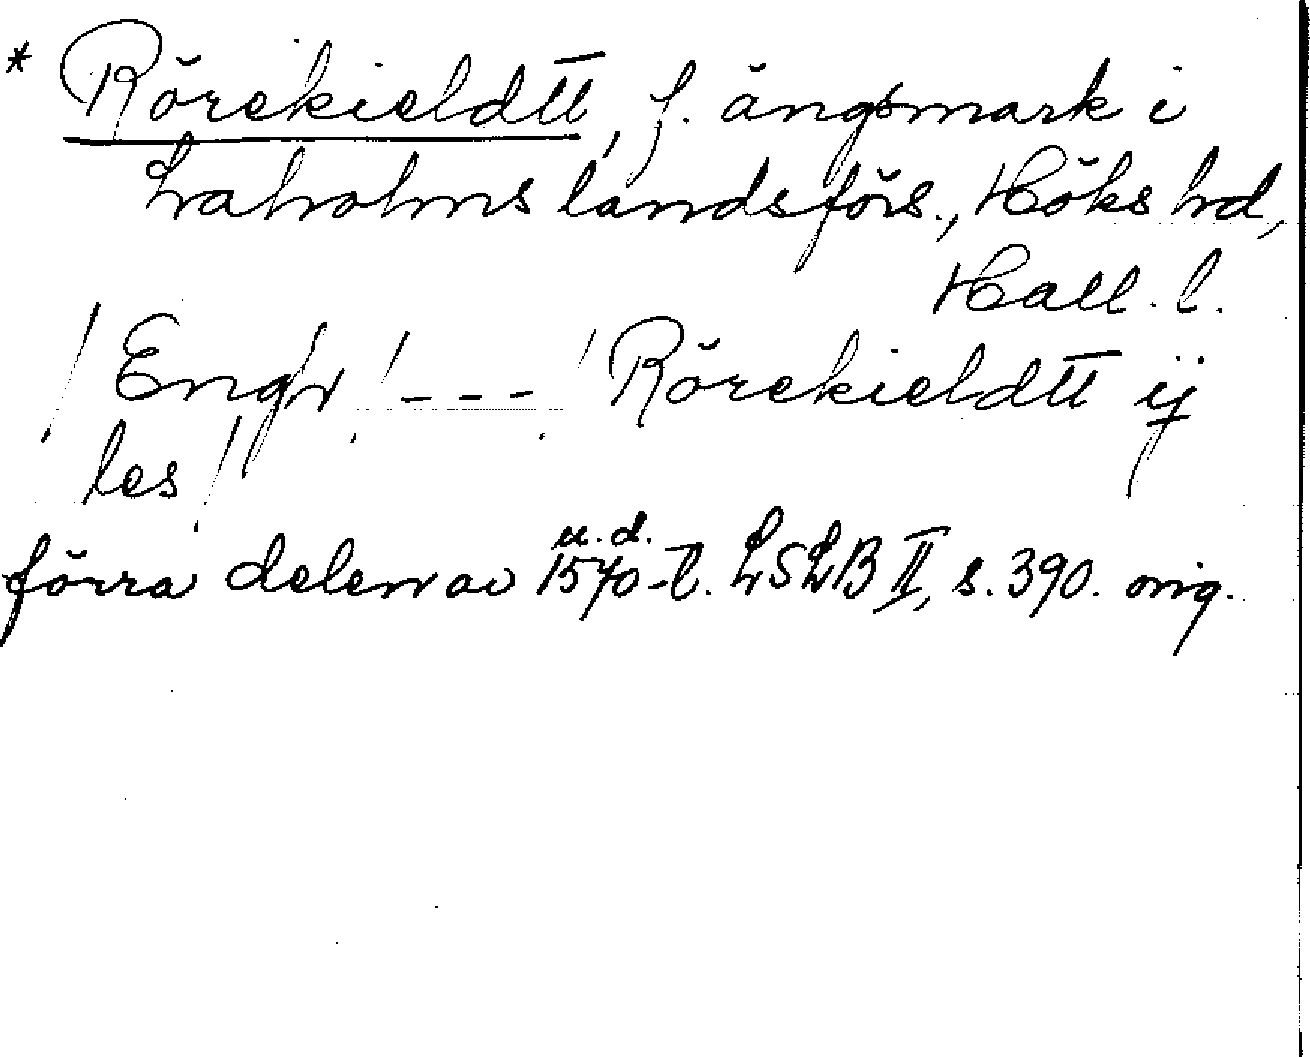 * Rörekieldtt, f. ängsmark i
Laholms landsförs., Höks hd,
Hall. l.
/Engh/ --- /Rörekieldtt ij
les/
u. d.
förra delen av 1570-t. LSLB II, s. 390. orig.